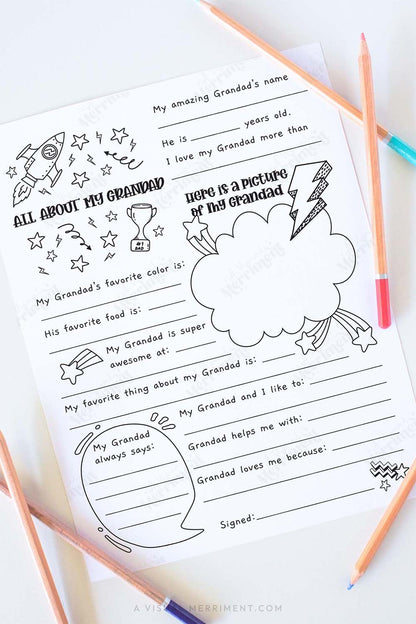 My amazing Grandad's name
He is ________ years old.
I love my Grandad more than
ALL ABOUT MY GRANDAD
Here is a picture
of my Grandad
#1
DAD
My Grandad's favorite color is:
His favorite food is:
My Grandad is super
awesome at:
My favorite thing about my Grandad is:
My Grandad and I like to:
My Grandad
always says:
Grandad helps me with:
Grandad loves me because:
Signed:
A VISIT MERRIMENT.COM